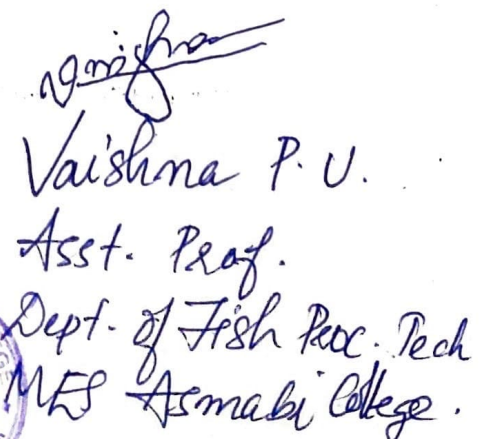 Vaishna P. U.
Asst. Prof.
Dept. of Fish Proc. Tech
MES Asmabi College.